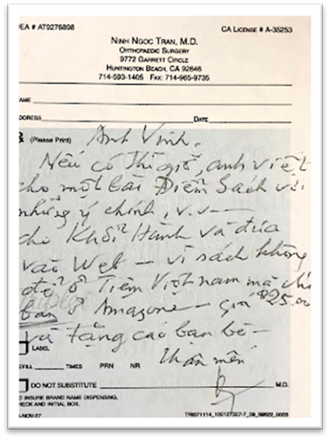 DEA # AT9276898 CA LICENSE # A-35253
NINH NGOC TRAN, M.D.
ORTHOPAEDIC SURGERY
9772 GARRETT CIRCLE
HUNTINGTON BEACH, CA 92646
714-593-1405 FAX: 714-965-9735
NAME
ADDRESS DATE
(Please Print) Anh Vinh.
Nếu có thì giờ, anh viết
cho một bài Điểm Sách với
những ý chính, v.v—
cho Khởi Hành và đưa
vào Web – vì sách không
để ở Tiệm Việt nam mà chỉ
bán ở Amazone – giá $25.00
và tặng các bạn bè –
LABEL
Thân mến
REFILL TIMES PRN NR
DO NOT SUBSTITUTE M.D.
TO INSURE BRAND NAME DISPENSING,
CHECK AND INITIAL BOX.